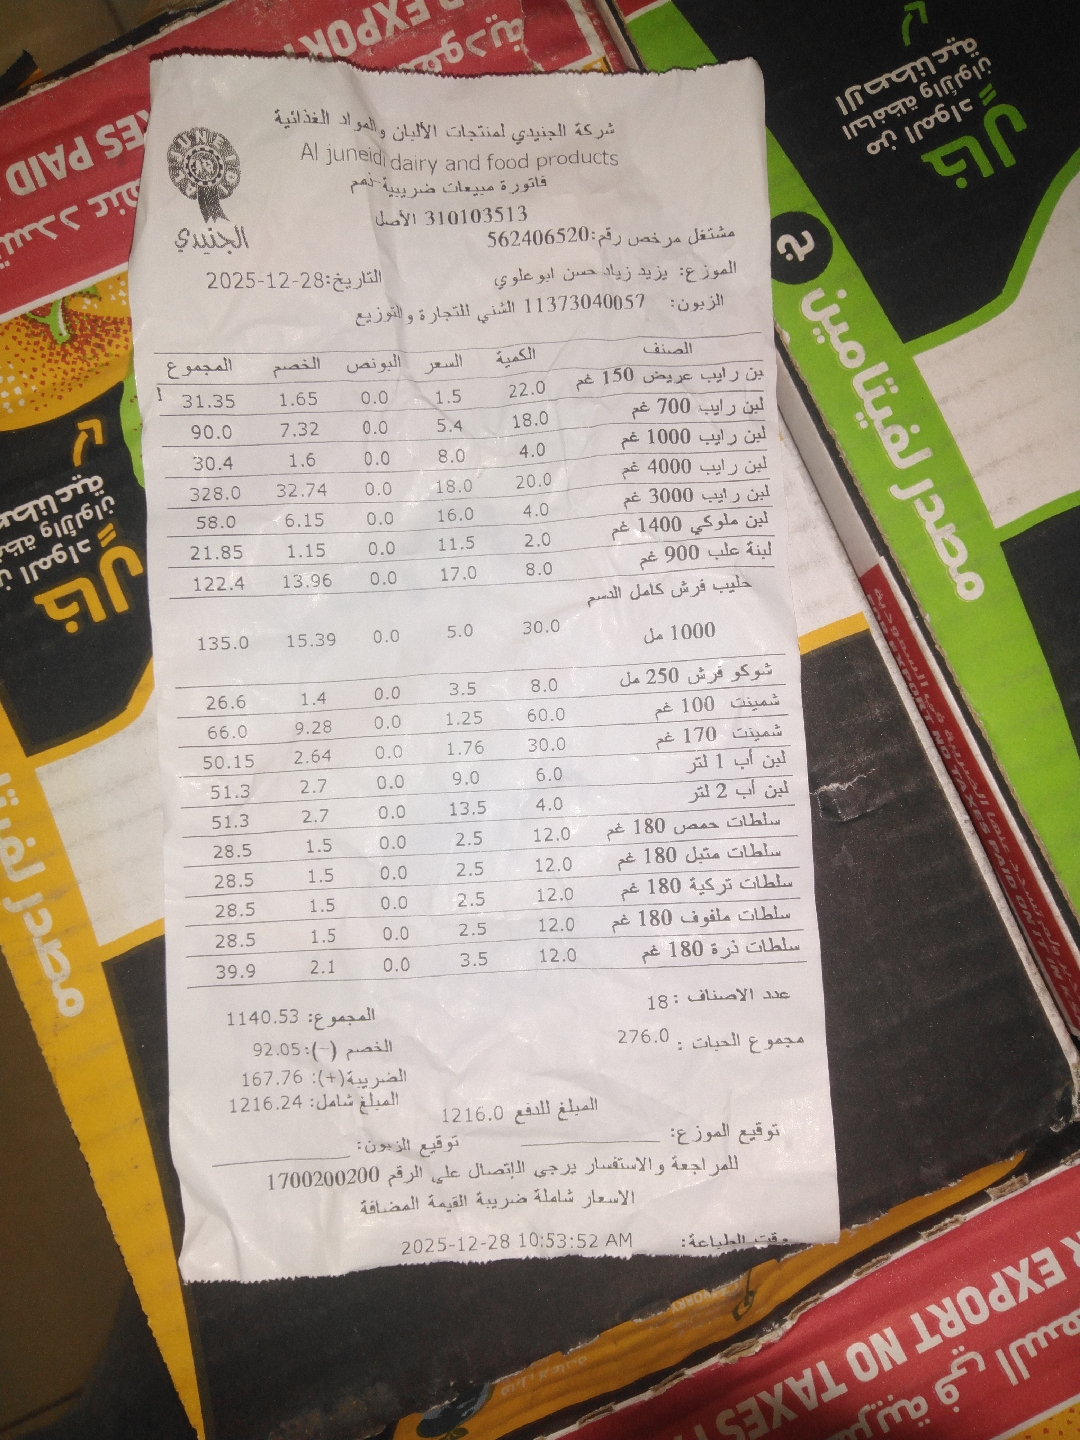 شركة الجنيدي لمنتجات الألبان والمواد الغذائية
Al juneidi dairy and food products
فاتورة مبيعات ضريبية-ذمم
310103513 الأصل
مشتغل مرخص رقم:562406520
الجنيدي
الموزع: يزيد زياد حسن ابو علوي التاريخ:2025-12-28
الزبون: 11373040057 الشني للتجارة والتوزيع
الصنف الكمية السعر البونص الخصم المجموع
بن رايب عريض 150 غم 22.0 1.5 0.0 1.65 31.35
لبن رايب 700 غم 18.0 5.4 0.0 7.32 90.0
لبن رايب 1000 غم 4.0 8.0 0.0 1.6 30.4
لبن رايب 4000 غم 20.0 18.0 0.0 32.74 328.0
لبن رايب 3000 غم 4.0 16.0 0.0 6.15 58.0
لبن ملوكي 1400 غم 2.0 11.5 0.0 1.15 21.85
لبنة علب 900 غم 8.0 17.0 0.0 13.96 122.4
حليب فرش كامل الدسم
1000 مل 30.0 5.0 0.0 15.39 135.0
شوكو فرش 250 مل 8.0 3.5 0.0 1.4 26.6
شمينت 100 غم 60.0 1.25 0.0 9.28 66.0
شمينت 170 غم 30.0 1.76 0.0 2.64 50.15
لبن أب 1 لتر 6.0 9.0 0.0 2.7 51.3
لبن أب 2 لتر 4.0 13.5 0.0 2.7 51.3
سلطات حمص 180 غم 12.0 2.5 0.0 1.5 28.5
سلطات متبل 180 غم 12.0 2.5 0.0 1.5 28.5
سلطات تركية 180 غم 12.0 2.5 0.0 1.5 28.5
سلطات ملفوف 180 غم 12.0 2.5 0.0 1.5 28.5
سلطات ذرة 180 غم 12.0 3.5 0.0 2.1 39.9
عدد الاصناف : 18 المجموع: 1140.53
مجموع الحبات : 276.0 الخصم (-):92.05
الضريبة(+): 167.76
المبلغ شامل: 1216.24
المبلغ للدفع 1216.0
توقيع الموزع: توقيع الزبون:
للمراجعة والاستفسار يرجى الإتصال على الرقم 1700200200
الاسعار شاملة ضريبة القيمة المضافة
وقت الطباعة: 2025-12-28 10:53:52 AM
خالٍ
من المواد
الحافظة والألوان
الاصطناعية
مصدر لفيتامين ج
EXPORT
ES PAID
خالٍ
مصدر لفيتا
R EXPORT NO TAXES PA